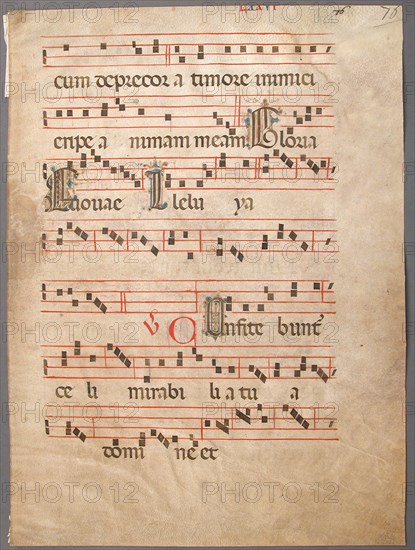 LXXVI 76 78
cum deprecor a timore inimici
eripe a nimam meam Gloria
Euouae Alelu ya
V Confite bunt
ce li mirabi lia tu a
domi ne et